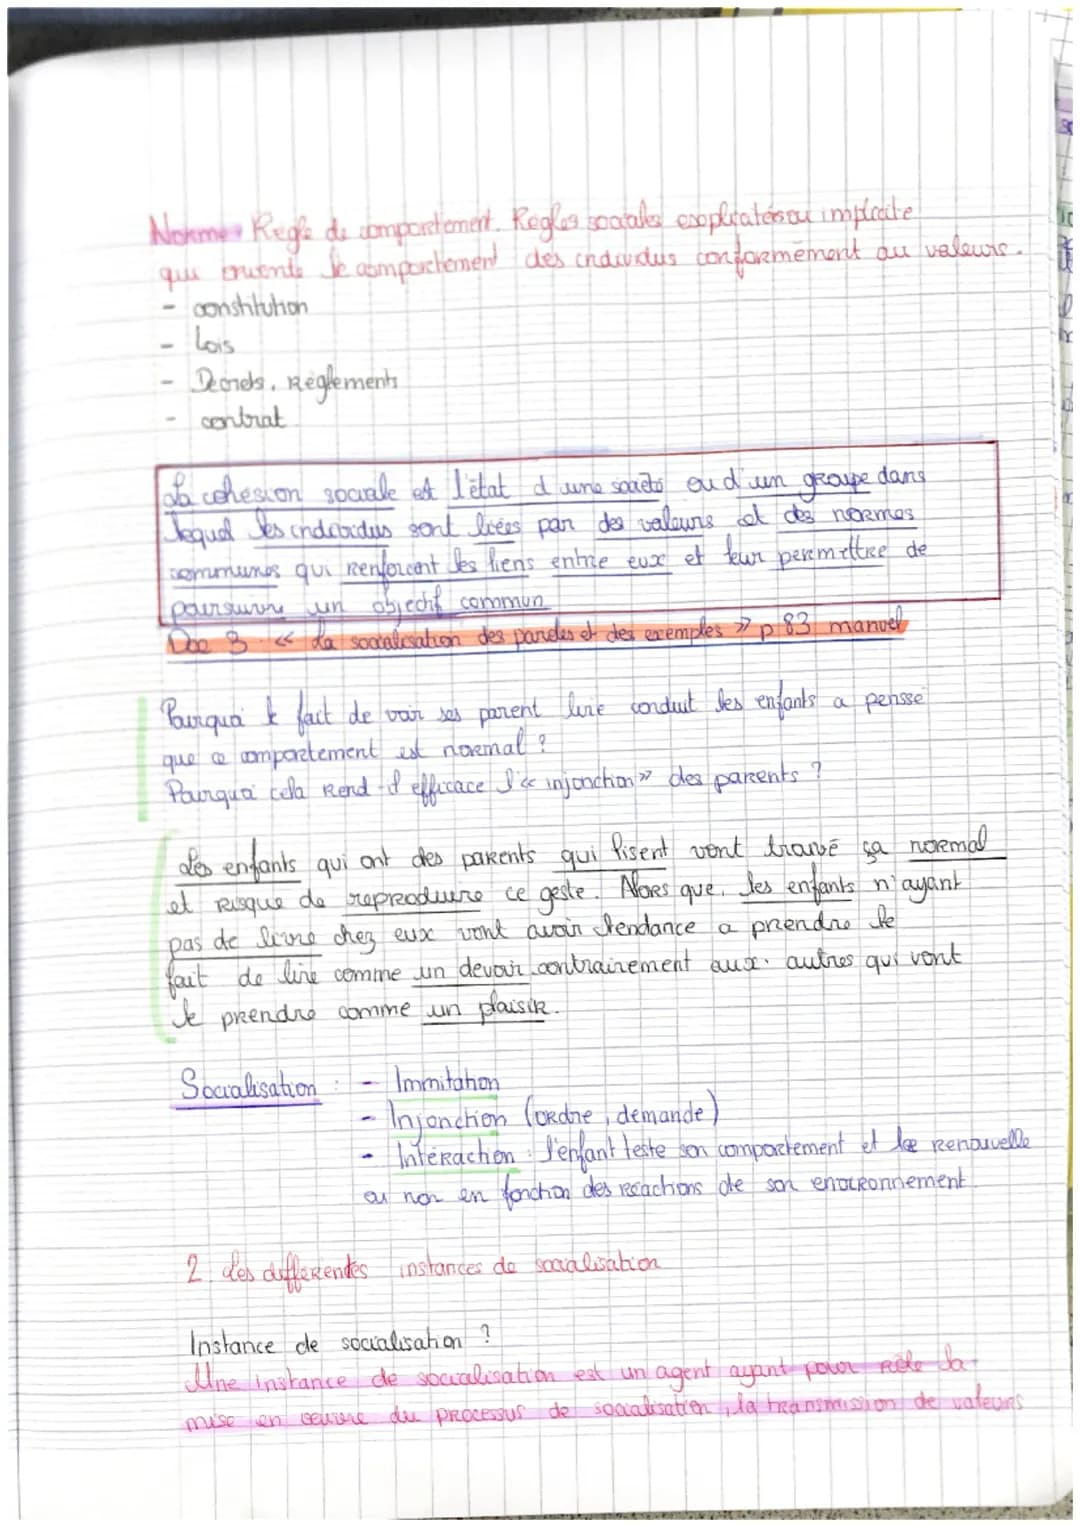 Norme : Regle de comportement. Regles sociales explicatées ou implicite
qui oriente le comportement des individus conformément au valeurs.
- constitution
- Lois
- Decrets, Réglements
- contrat
La cohesion sociale est l'état d'une societé ou d'un groupe dans
lequel les individus sont liées par des valeurs et des normes
communes qui renforcent les liens entre eux et leur permettre de
poursuivre un objectif commun
Doc 3 « La socialisation des paroles et des exemples » p 83 manuel
Pourquoi le fait de voir ses parent lire conduit les enfants a pensse
que ce comportement est normal ?
Pourquoi cela rend-il efficace l'« injonction » des parents ?
Les enfants qui ont des parents qui lisent vont trouvé ça normal
et risque de reproduire ce geste. Alors que, les enfants n'ayant
pas de livre chez eux vont avoir tendance a prendre le
fait de lire comme un devoir contrairement aux autres qui vont
le prendre comme un plaisir.
Socialisation : - Immitation
- Injonction (ordre, demande)
- Intéraction : l'enfant teste son comportement et le renouvelle
ou non en fonction des réactions de son environnement
2. Les differentes instances de socialisation
Instance de socialisation ?
Une instance de socialisation est un agent ayant pour rôle la
mise en oeuvre du processus de socialisation, la transmission de valeurs